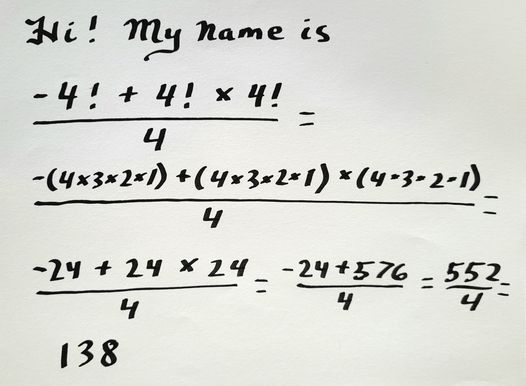 Hi! My name is
-4! + 4! × 4!
4
=
-(4×3×2×1) + (4×3×2×1) × (4×3×2×1)
4
=
-24 + 24 × 24 / 4 = -24+576 / 4 = 552 / 4 =
138